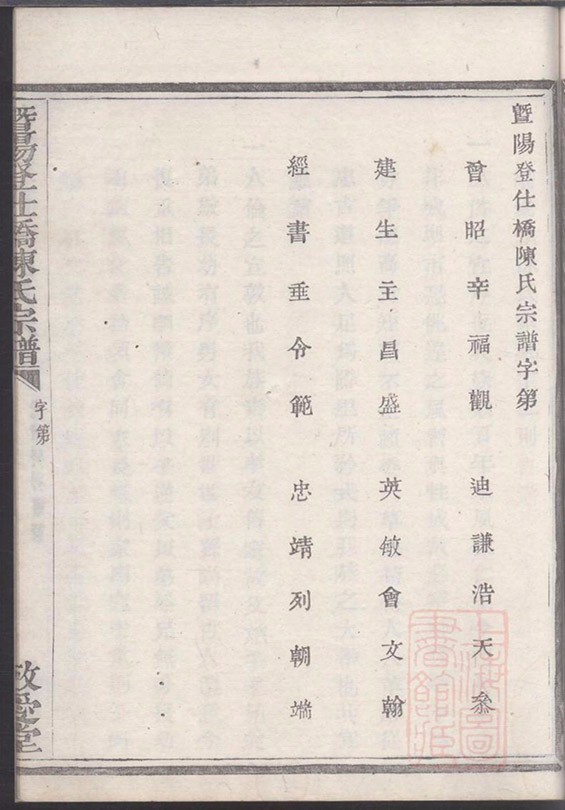 暨陽登仕橋陳氏宗譜字第
曾昭辛福觀迪謙浩天叅
建生主昌盛英敏會文翰
經書垂令範忠靖列朝端
暨陽登仕橋陳氏宗譜
字第
敦受堂